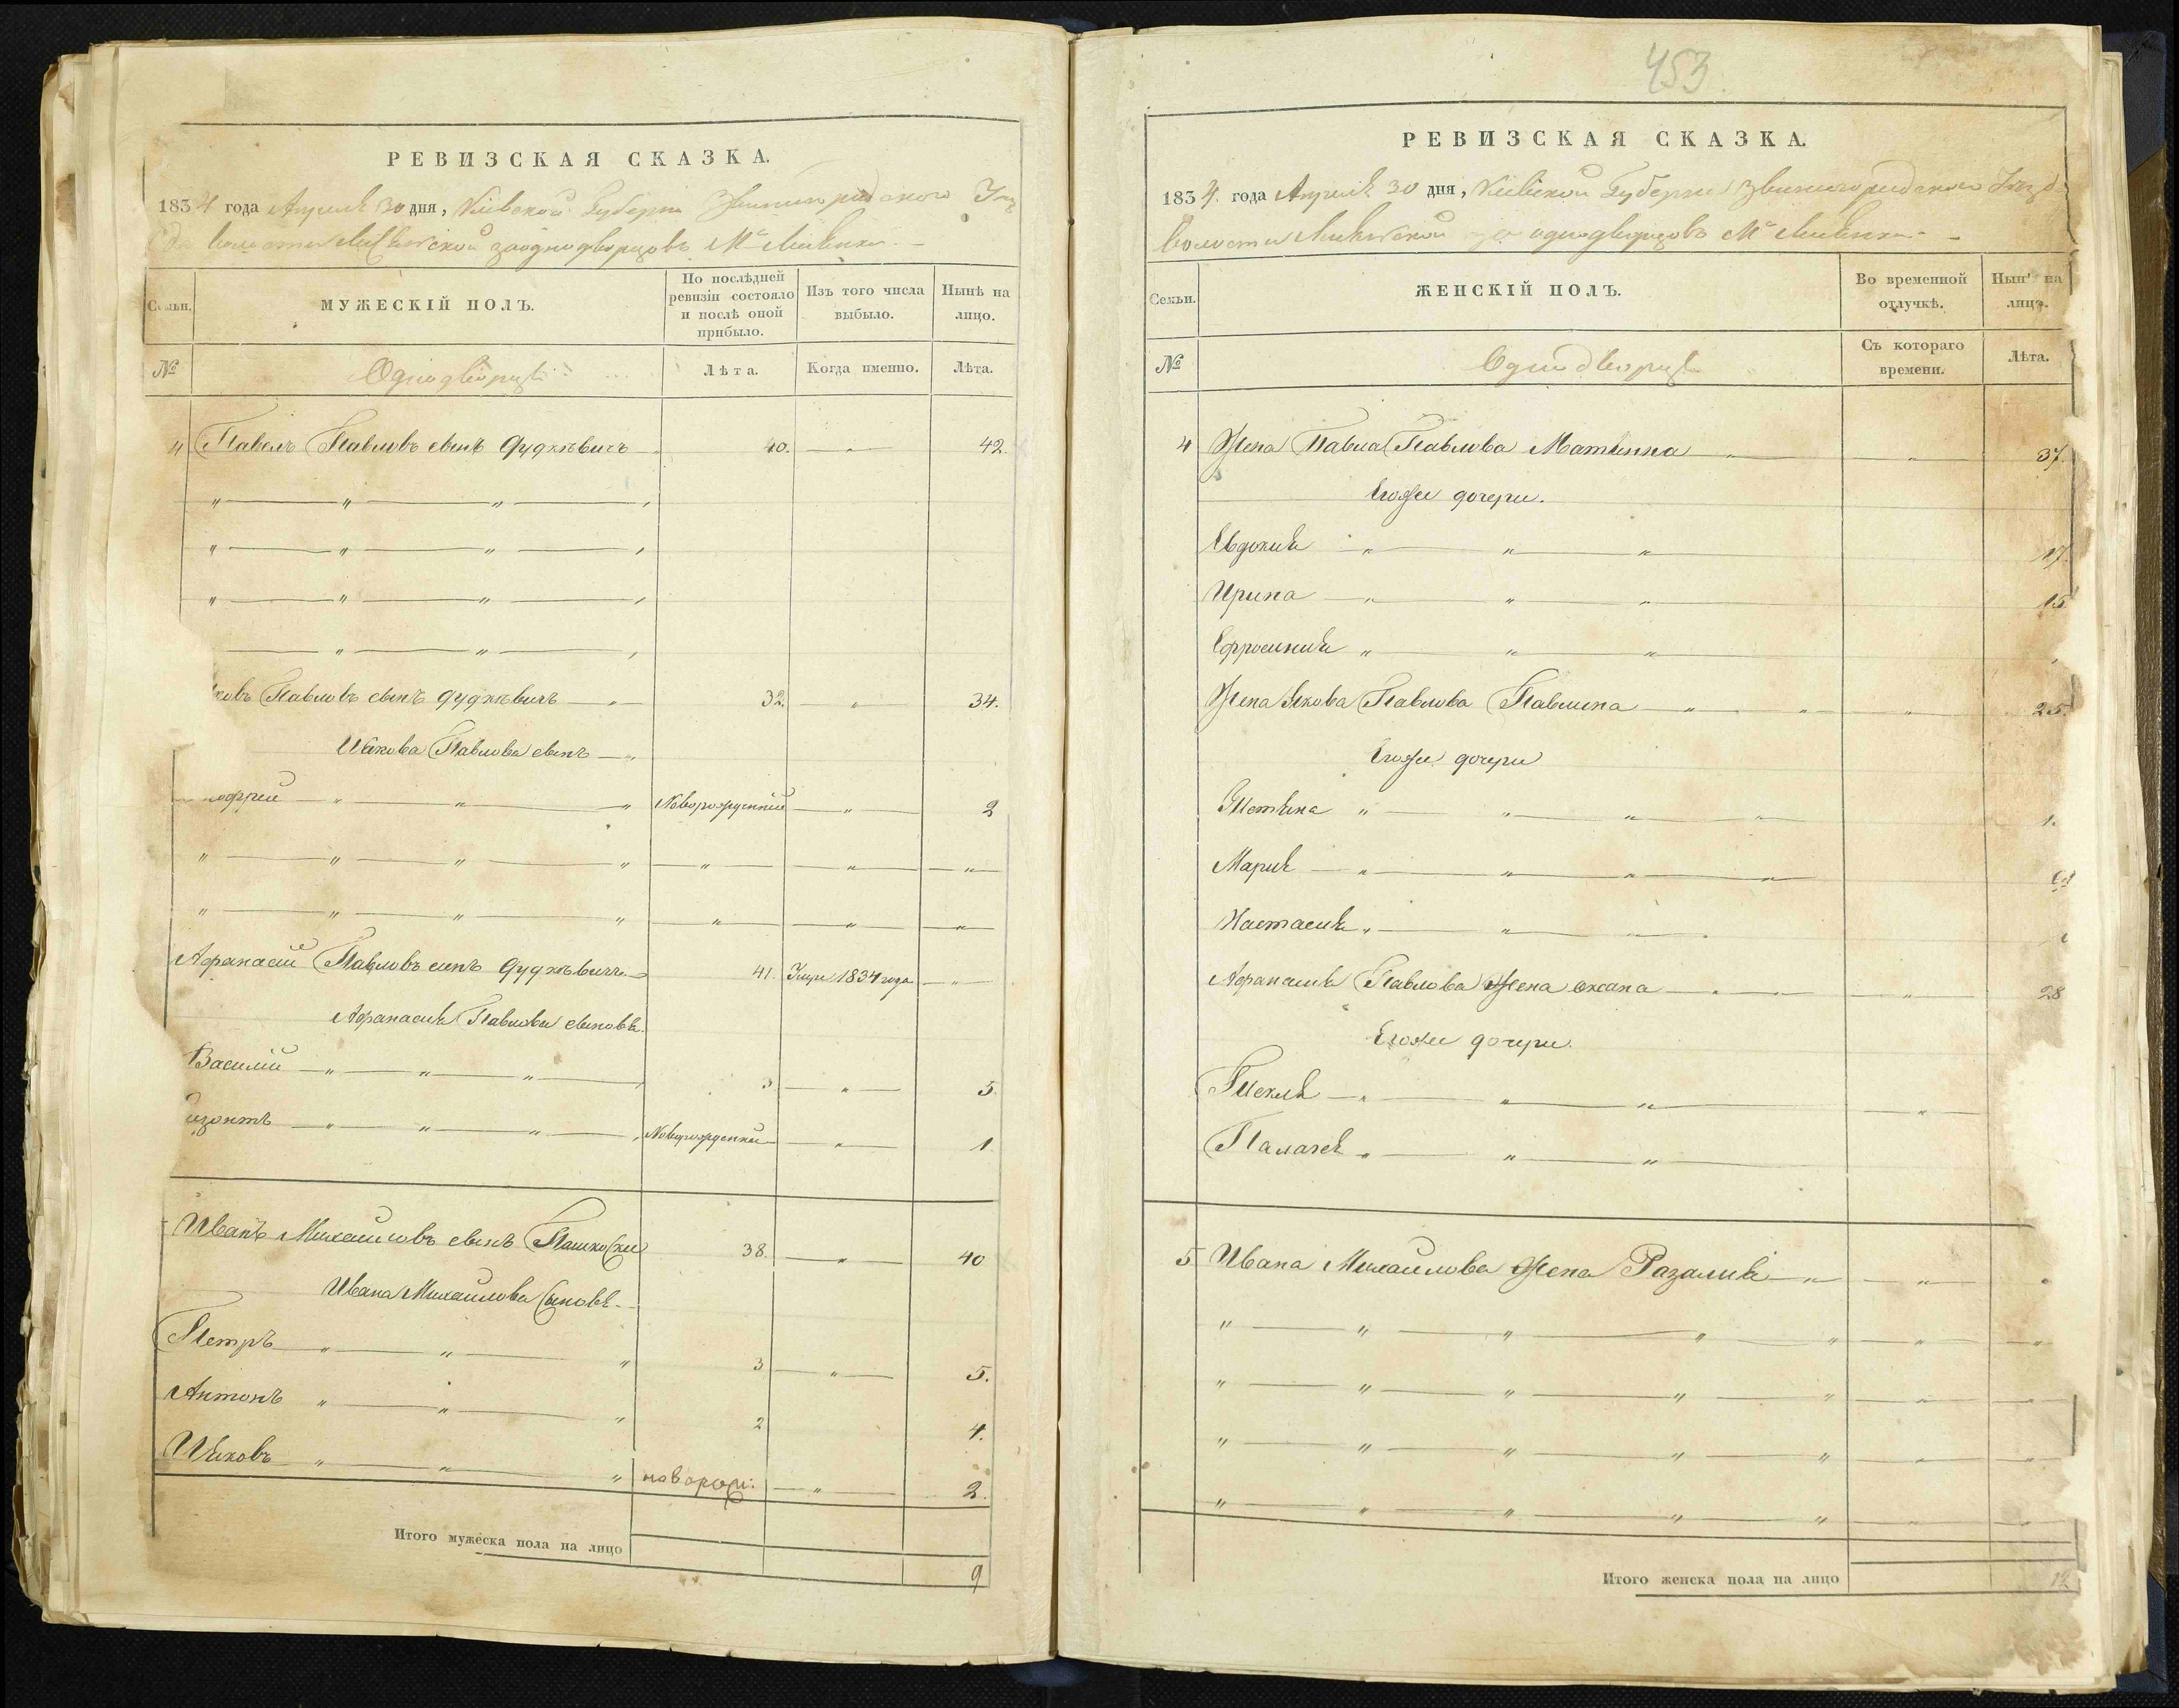 РЕВИЗСКАЯ СКАЗКА.
1834 года Апреля 30 дня, Киевской Губернии Звенигородского Уез
да волости Лисянской однодворцовъ Мѣ
Семьи.
МУЖЕСКІЙ ПОЛЪ.
По послѣдней ревизіи состояло и послѣ оной прибыло.
Изъ того числа выбыло.
Нынѣ на лицо.
№
Однодворцы
Лѣта.
Когда именно.
Лѣта.
4 Павелъ Павловъ сынъ 40. " 42.
" " " "
" " " "
" " " "
" " "
ковъ Павловъ сынъ 32. " 34.
Иякова Павлова сынъ "
офрей " " " Новорожденний " 2
" " " " " " "
" " " " " " "
Афанасий Павловъ сынъ 41. 1834 года "
Афанасия Павлова сыновья.
Василий " " " 3 " 5.
изонтъ " " " Новорожденний " 1
Иванъ Михаиловъ сынъ 38. " 40
Ивана Михаилова сыновья.
Петръ " " " 3 " 5.
Антонъ " " " 2 4.
Ияковъ " " " новорож: " 2.
Итого мужеска пола на лицо
9
453
РЕВИЗСКАЯ СКАЗКА.
1834. года Апреля 30 дня, Киевской Губернии Звенигородского Уезда
волости однодворцовъ Мѣ
Семьи.
ЖЕНСКІЙ ПОЛЪ.
Во временной отлучкѣ.
Нынѣ на лицо.
№
Однодворцы
Съ котораго времени.
Лѣта.
4 Жена Павла Павлова Матянна " " 37.
Егоже дочери.
Евдокия " " " 17.
Ирина " " " 15
Ефросиния " " "
Жена Якова Павлова Павлина " " " 25.
Егоже дочери
Тетяна " " " " 1.
Мария " " " "
Настасия " " "
Афанасия Павлова Жена Оксана " " " 28
Егоже дочери.
Текля " " " "
Палагея " " "
5 Ивана Михаилова Жена Разалия " "
" " " " " " "
" " " " " " "
" " " " " " "
" " " " " " "
Итого женска пола на лицо
12